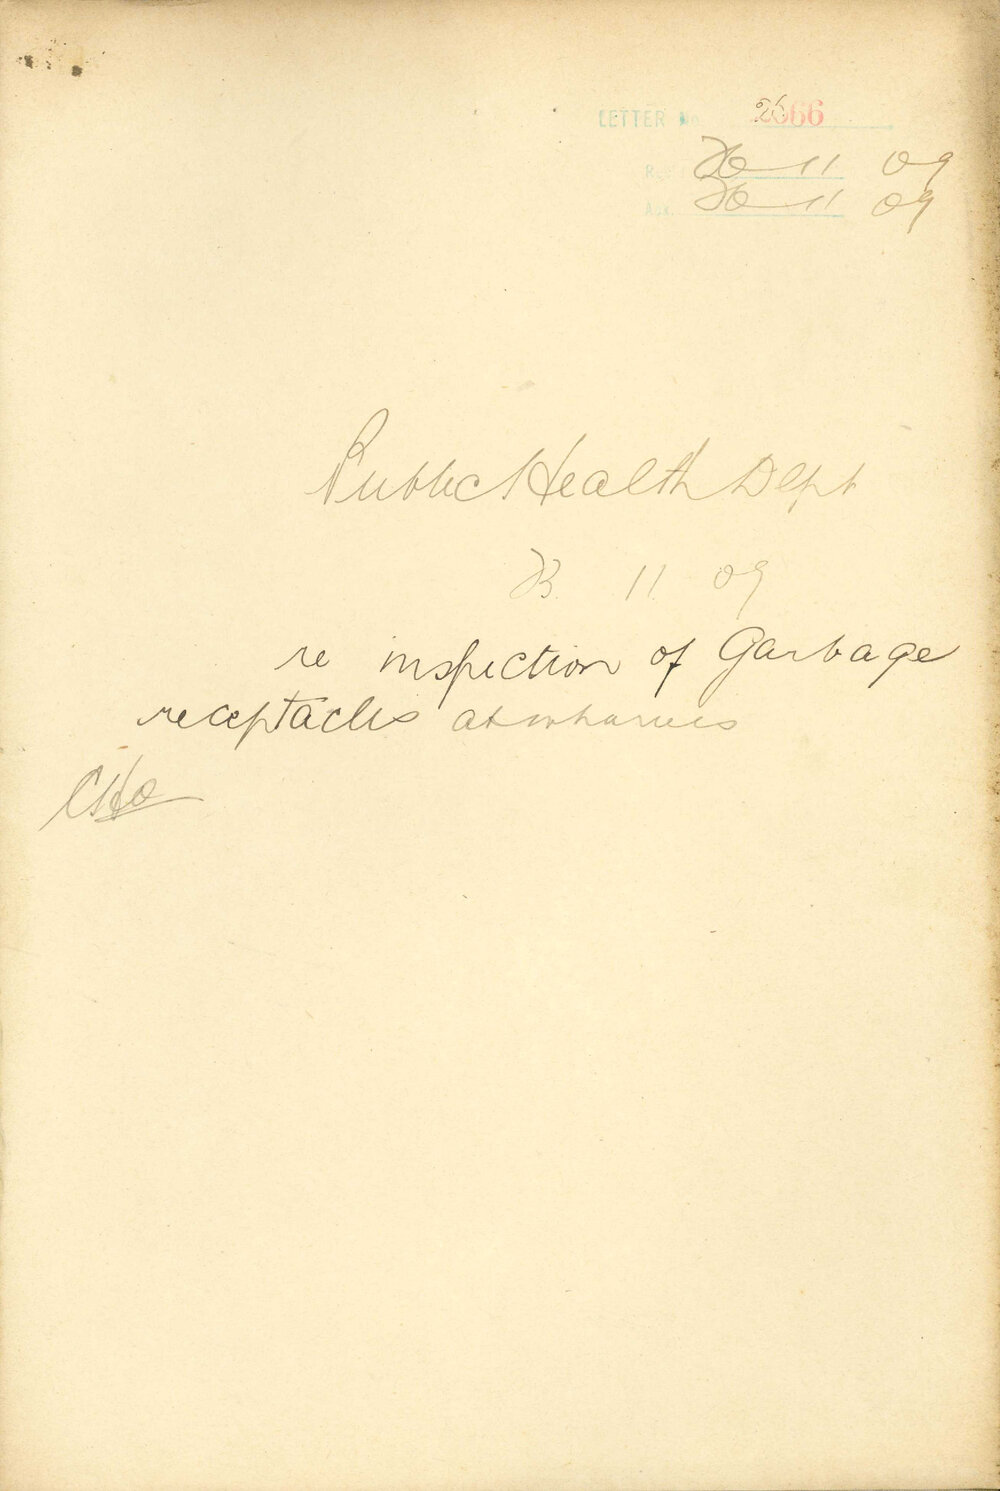 LETTER No. 2566
Rec 26 11 09
Ack. 26 11 09
Public Health Dept
23. 11. 09
re inspection of Garbage
receptacles at wharves
CHO